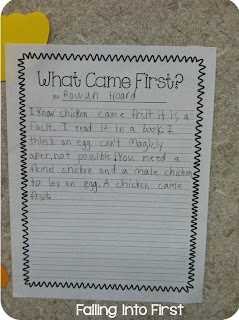 What Came First?
By: Rowan Hoard
I know chicken came frsit it is a
fact. I read it in a book. I
think an egg can't magicly
aper, not possible! You need a
femel chicken and a male chicken
to ley an egg. A chicken came
frsit.
Falling Into First